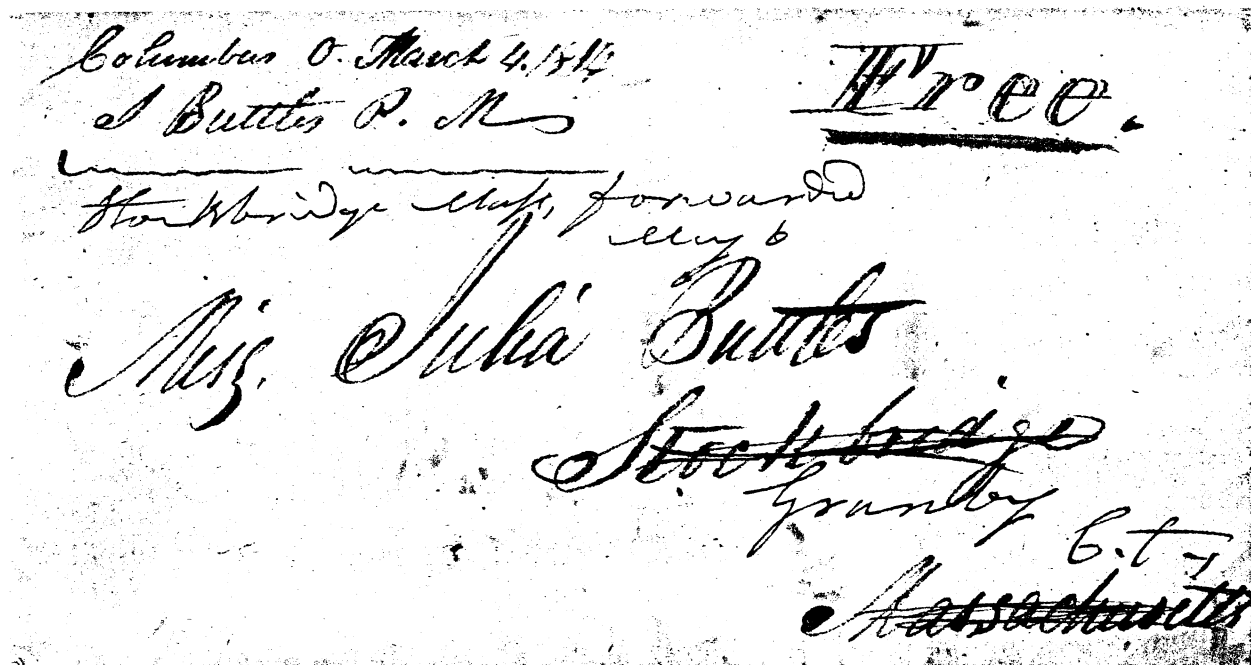 Columbus O. March 4. 1814
Free.
J Buttles P. M
Stockbridge Mass, forwarded
May 6
Miss. Julia Buttles
Stockbridge
Granby
C.t
Massachusetts